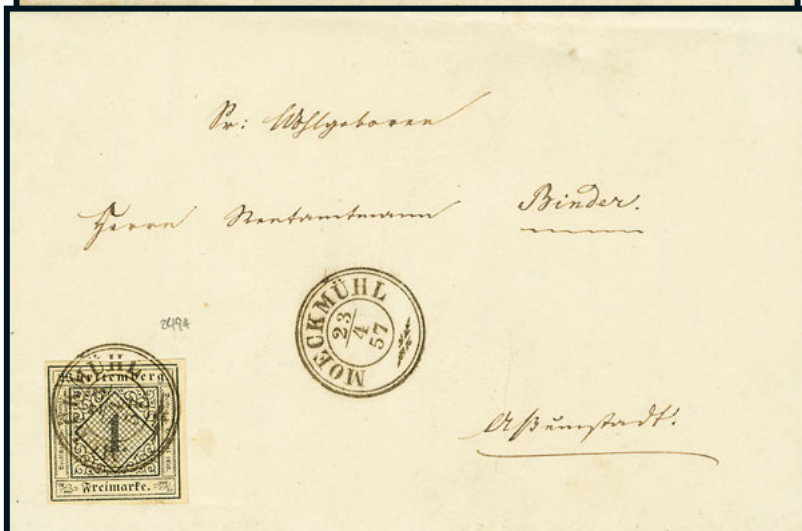 Sr: Wohlgeboren
Herrn Rentamtmann Binder.
MOECKMÜHL
23
4
57
2494
CKMÜHL
Württemberg
1
Freimarke.
Assumstadt.